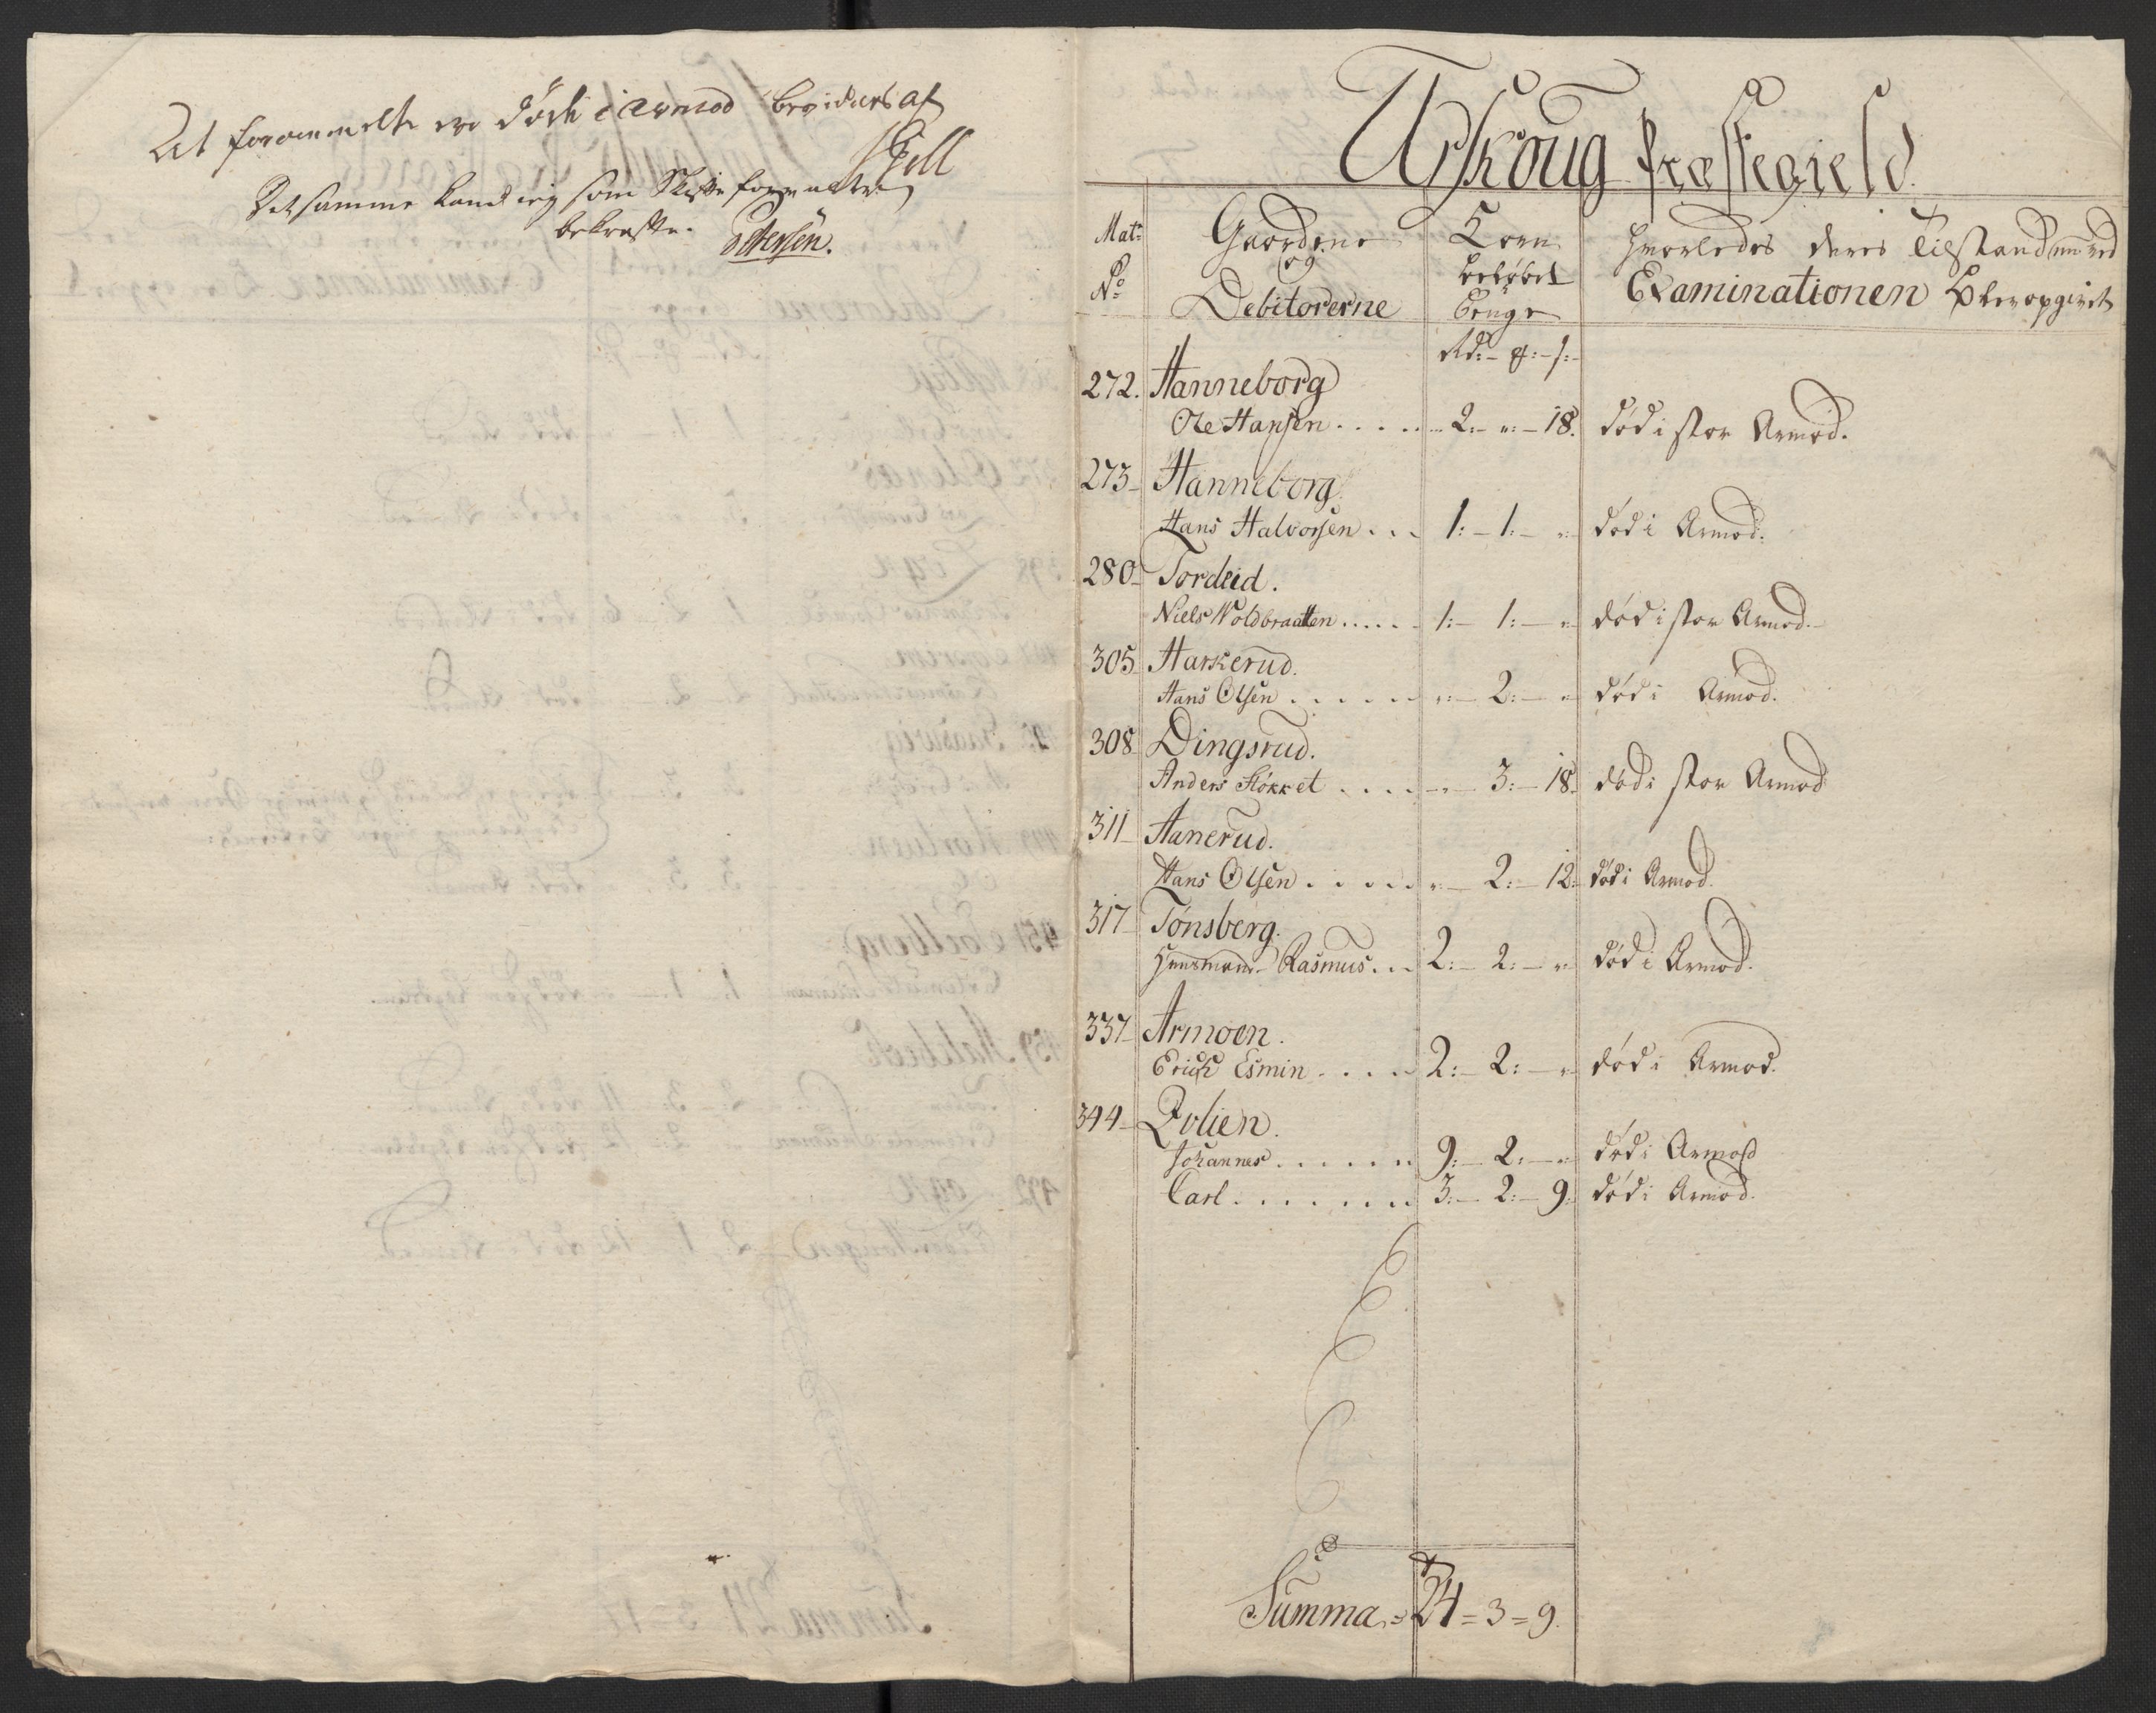 At forommelte ere døde i armod bevidnes af
Schell
Det samme kand jeg som Skifteforvalter
bekræfte. Ottersen.
Urskoug Præstegield.
Mat: No
Gaardene og Debitorerne
Korn beløbet Penge
Hvorledes deres Tilstand ved Examinationen blev opgivet
Rd:- ₰:- s:-
272. Hanneborg
Ole Hansen . . . . . 2:- ":- 18. død i stor Armod.
273 Hanneborg.
Hans Halvorsen . . . 1:- 1:- ":- død i Armod.
280 Tordeid.
Niels Woldbraatten . . . . . 1:- 1:- " død i stor Armod.
305 Harkerud.
Hans Olsen . . . . . ":- 2:- " død i Armod.
308 Dingsrud.
Anders Fløkket . . . . ":- 3:- 18. død i stor Armod
311 Aanerud.
Hans Olsen . . . . . ":- 2:- 12:- død i Armod.
317 Tønsberg.
Huusmand Rasmus . . . 2:- 2:- " død i Armod.
337 Armoen.
Erich Esmin . . . . 2:- 2:- " død i Armod.
344 Lolien.
Johannes . . . . . . 9:- 2:- " død i Armod
Carl . . . . . . . 3:- 2:- 9. død i Armod.
Summa = 24 = 3 = 9.